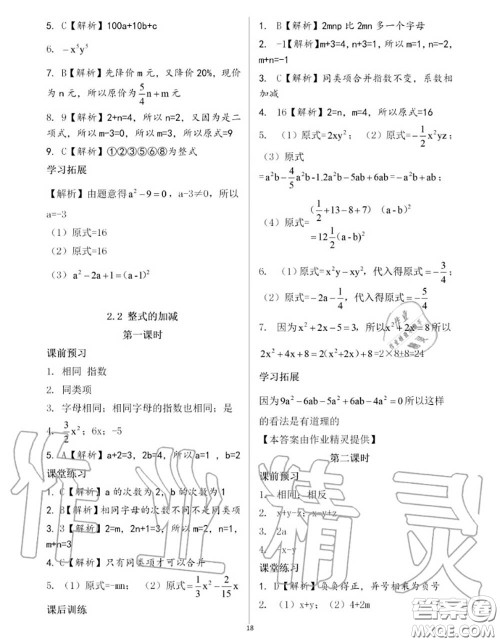 5. C【解析】100a+10b+c
6. －x³y⁵
7. B【解析】先降价 m 元，又降价 20%，现价
为 n 元，所以原价为 5/4 n+m 元
8. 9【解析】因为 n+2=4，所以 n=2，又因为是二
项式，所以 m-3=0，所以 m=3，所以原式=9
9. C【解析】①②③⑤⑥⑧为整式
学习拓展
【解析】由题意得 a²－9=0，a-3≠0，所以
a=-3
（1）原式=16
（2）原式=16
（3）a²－2a+1=(a-1)²
2.2 整式的加减
第一课时
课前预习
1. 相同 指数
2. 同类项
3. 字母相同；相同字母的指数也相同；是
4. 3/2 x²；6x；-5
5. A【解析】a+2=3，2b=4，所以 a=1，b=2
课堂练习
1. C【解析】a 的次数为 2，b 的次数为 1
2. B【解析】相同字母的次数不同不是同类项
3. 3【解析】2=m，2n+1=3，所以 m=2，n=1，
m+n=3
4. C【解析】只有同类项才可以合并
5. （1）原式=-mn；（2）原式= 1/3 x²－2/15 x
课后训练
1. B【解析】2mnp 比 2mn 多一个字母
2. -1【解析】m+3=4，n+3=1，所以 m=1，n=-2，
m+n=-1
3. C【解析】同类项合并指数不变，系数相
加减
4. 16【解析】2=n，m=4，所以原式=16
5. （1）原式=2xy²；（2）原式=－1/2 x²yz；
（3）原式
=a²b－4/5 a²b-1.2a²b-5ab+6ab=－a²b+ab；
（4）原式= (1/2+13-8+7)(a-b)²
=12 1/2 (a-b)²
6. （1）原式=x²y－xy²，代入得原式=－3/4；
（2）原式=－a²b，代入得原式=－5/4
7. 因为 x²+2x-5=3，所以 x²+2x=8 所以
2x²+4x+8=2(x²+2x)+8=2×8+8=24
学习拓展
因为 9a²－6ab-5a²+6ab－4a²=0 所以这样
的看法是有道理的
【本答案由作业精灵提供】
第二课时
课前预习
1. 相同；相反
2. x+y-z；x-y+z
3. 2a
4. -x-y
课堂练习
1. D【解析】负负得正，异号相乘为负号
2. （1）x+y；（2）4+2m
18
作业精灵
答案圈
MXQE.COM